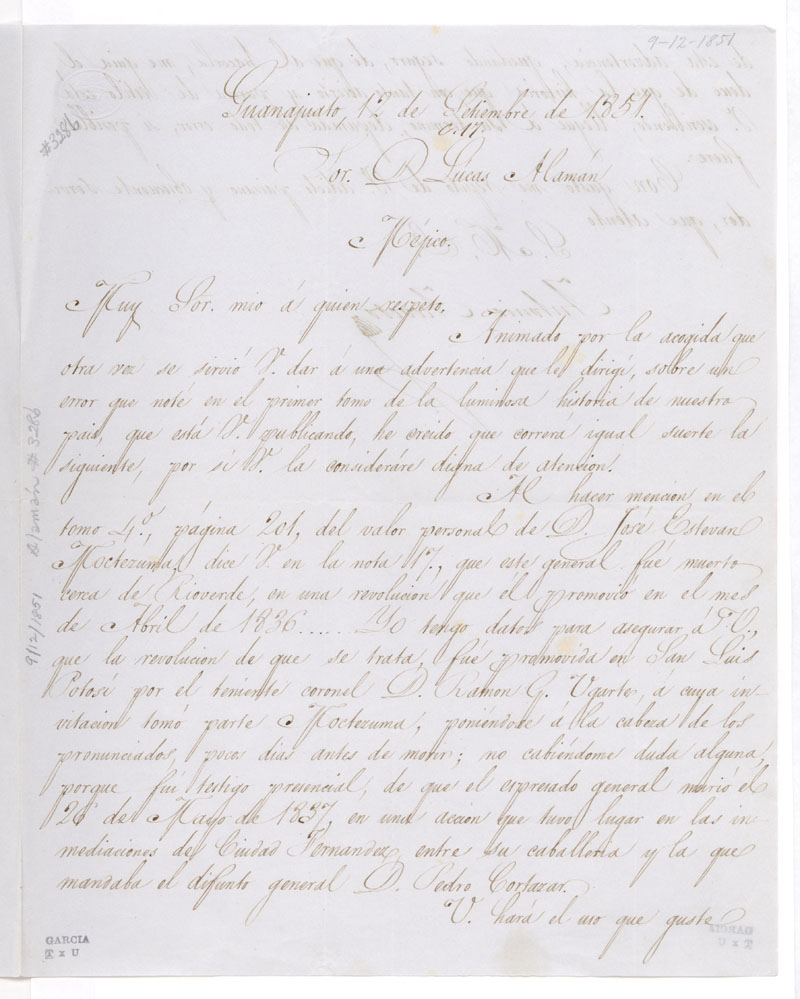 9-12-1851
Guanajuato, 12 de Setiembre de 1851.
#3286
Sor. D. Lúcas Alamán
Méjico.
Muy Sor. mio á quien respeto.
Animado por la acogida que
otra vez se sirvió V. dar á una advertencia que le dirigí, sobre un
error que noté en el primer tomo de la luminosa historia de nuestro
pais, que está V. publicando, he creido que correrá igual suerte la
siguiente, por si V. la consideráre digna de atencion.
Al hacer mencion en el
tomo 4º, página 201, del valor personal de D. José Estevan
Moctezuma, dice V. en la nota 17, que este general fué muerto
cerca de Rioverde, en una revolucion que él promovió en el mes
de Abril de 1836...... Yo tengo datos para asegurar á V.,
que la revolucion de que se trata, fué promovida en San Luis
Potosí por el teniente coronel D. Ramon G. Ugarte, á cuya in-
vitacion tomó parte Moctezuma, poniéndose á la cabeza de los
pronunciados, pocos dias antes de morir; no cabiéndome duda alguna,
porque fuí testigo presencial, de que el espresado general murió el
26 de Mayo de 1837, en una acción que tuvo lugar en las in-
mediaciones de Ciudad Fernandez, entre su caballeria y la que
mandaba el difunto general D. Pedro Cortazar.
V. hará el uso que guste
9/12/1851 Alamán #3286
GARCIA
T x U